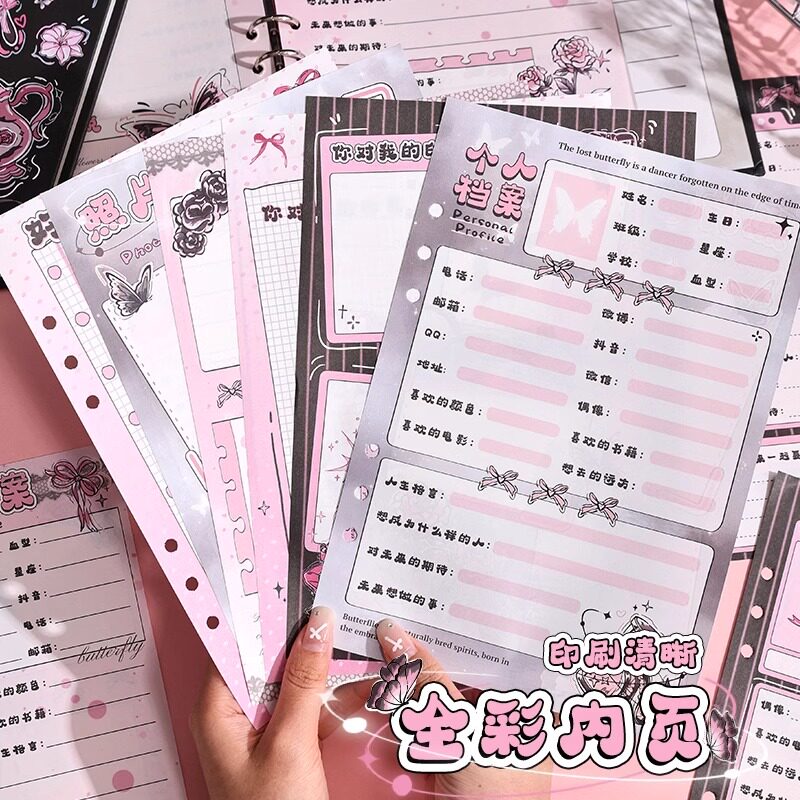 未来想做的事:
对未来的期待:
的事:
个人
档案
Personal
Profile
The lost butterfly is a dancer forgotten on the edge of tim
姓名:
生日:
班级:
星座:
学校:
血型:
电话:
微博:
邮箱:
抖音:
QQ:
微信:
地址:
偶像:
喜欢的颜色:
喜欢的书籍:
喜欢的电影:
想去的远方:
人生格言:
想成为什么样的人:
对未来的期待:
未来想做的事:
Butterfl
turally bred spirits, born in
the embra
你对我的
你对
照片
Pho
案
血型:
星座:
抖音:
电话:
邮箱:
butterfly
的颜色:
的书籍:
格言:
偶像:
印刷清晰
全彩内页